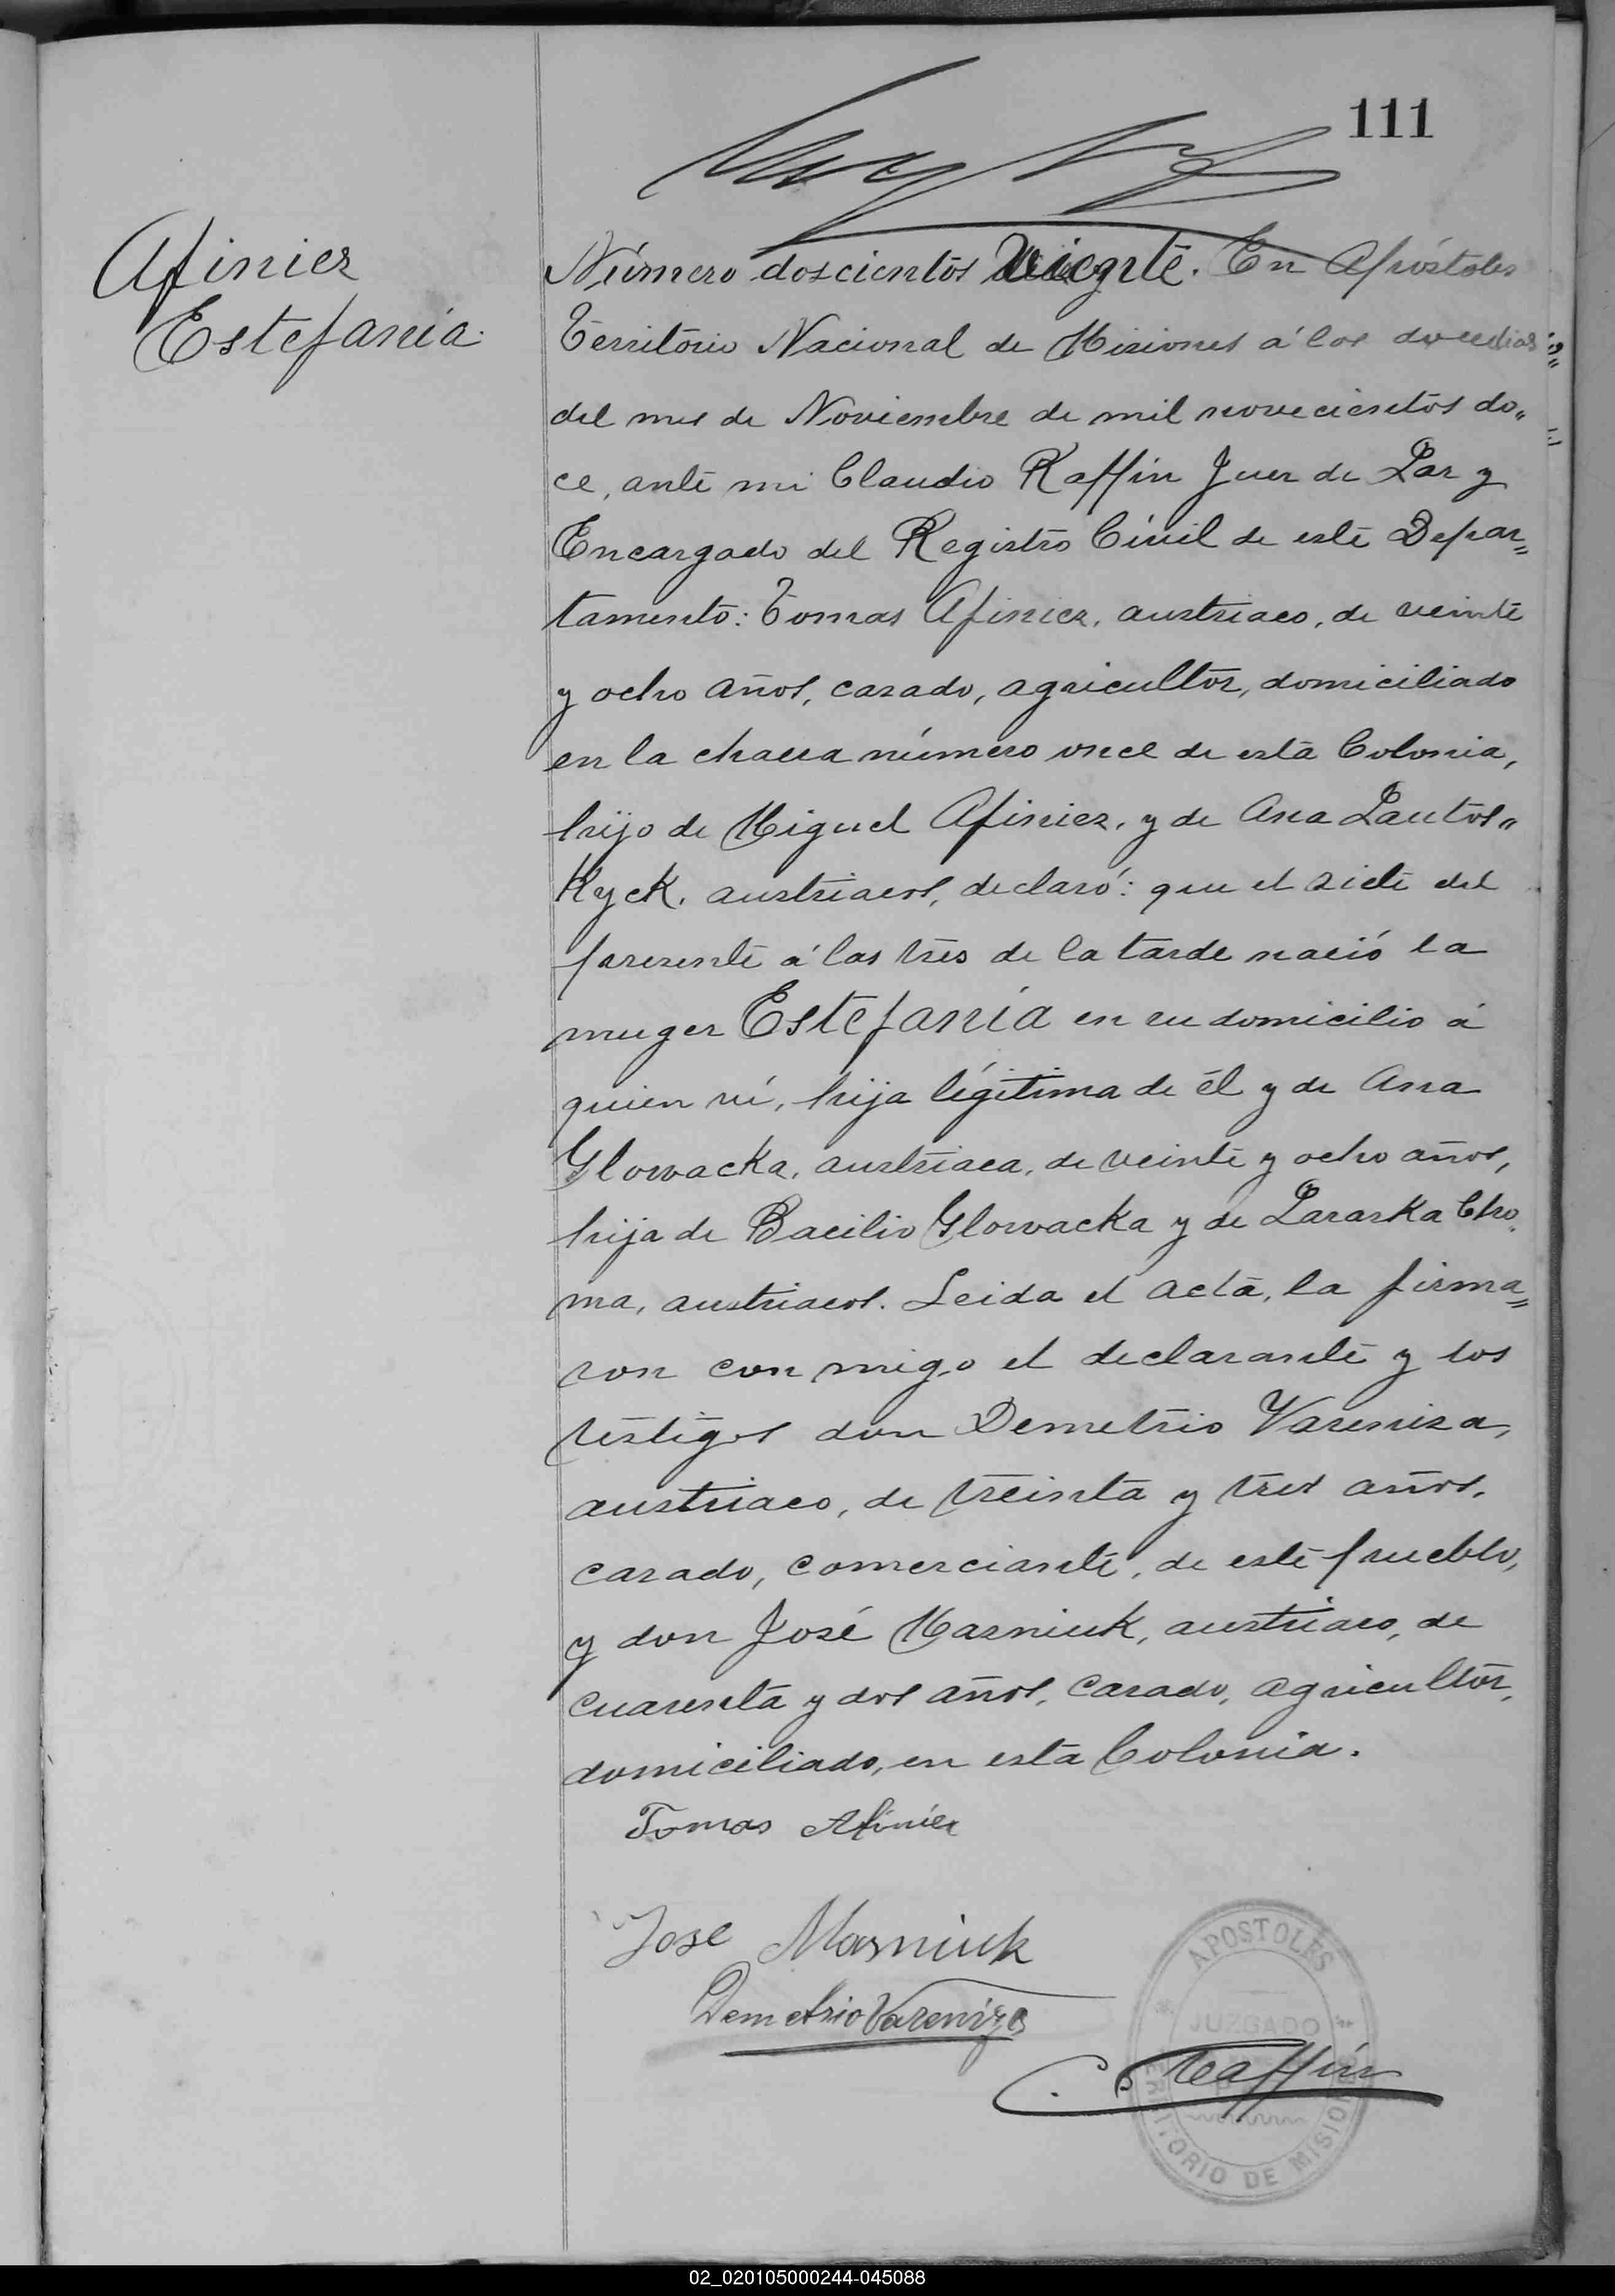 111
Afinier
Estefanía.
Número doscientos veinte. En Apóstoles
Territorio Nacional de Misiones á los doce dias
del mes de Noviembre de mil novecientos do„
ce, ante mi Claudio Raffin Juez de Paz y
Encargado del Registro Civil de este Depar=
tamento: Tomas Afinier, austriaco, de veinte
y ocho años, casado, agricultor, domiciliado
en la chacra número once de esta Colonia,
hijo de Miguel Afinier, y de Ana Pautos„
Kyck, austriacos, declaró: que el siete del
presente á las tres de la tarde nació la
muger Estefanía en su domicilio á
quien ví, hija légitima de él y de Ana
Glowacka, austriaca, de veinte y ocho años,
hija de Bacilio Glowacka y de Paraska Cho„
ma, austriacos. Leida el acta, la firma=
ron con migo el declarante y los
testigos don Demetrio Vareniza,
austriaco, de treinta y tres años,
casado, comerciante, de este pueblo,
y don José Masniuk, austriaco, de
cuarenta y dos años, casado, agricultor,
domiciliado, en esta Colonia.
Tomas Afinier
Jose Masniuk
Demetrio Vareniza
C. Raffin
APOSTOLES
JUZGADO
TERRITORIO DE MISIONES
02_020105000244-045088